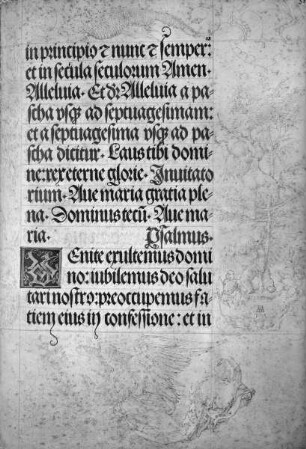 in principio ⁊ nunc ⁊ semper:
et in secula seculorum Amen.
Alleluia. Et dr̄ Alleluia a pa-
scha vsq; ad septuagesimam:
et a septuagesima vsq; ad pa-
scha dicitur. Laus tibi domi
ne: rex eterne glorie. Inuitato
rium. Aue maria gratia ple
na. Dominus tecū. Aue ma
ria. Psalmus.
VEnite exultemus domi
no: iubilemus deo salu
tari nostro: preoccupemus fa
tiem eius in confessione: et in